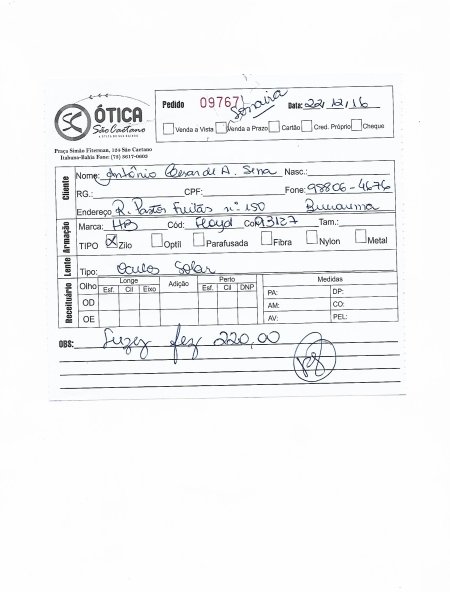 ÓTICA
São Caetano
Pedido 09767 Data: 22/12/16
Venda a Vista Venda a Prazo Cartão Cred. Próprio Cheque
Praça Simão Fiterman, 124 São Caetano
Itabuna-Bahia Fone: (73) 3617-0603
Cliente
Nome: Antônio Cesar de A. Sena Nasc.:
RG.: CPF: Fone: 98806-4676
Endereço R. Pastor Freitas nº 150
Armação
Marca: HB Cód: Floyd Cor: 93127 Tam.:
TIPO X Zilo Optil Parafusada Fibra Nylon Metal
Lente
Tipo: Oculos Solar
Receituário
Olho Longe Adição Perto Medidas
Esf. Cil Eixo Esf. Cil DNP
PA: DP:
OD AM: CO:
OE AV: PEL:
OBS: Suzy fez 220,00